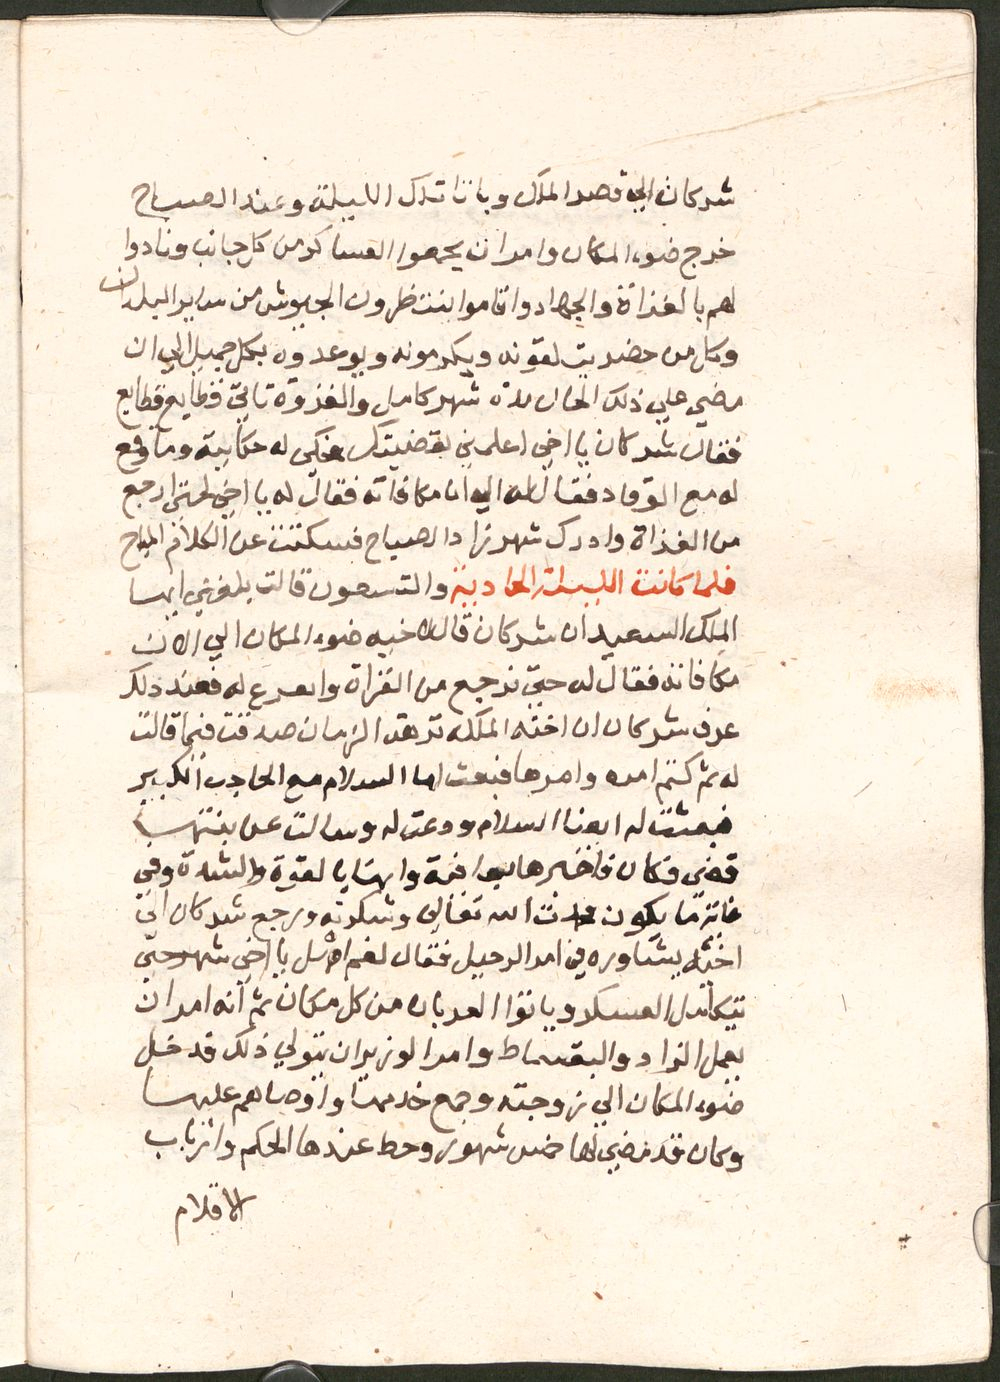 شركان الي قصر الملك وباتا تلك الليلة وعند الصباح
خرج ضوء المكان وامر ان يجمعوا العساكر من كل جانب ونادوا
لهم بالغزاة والجهاد واقاموا ينتظرون الجيوش من ساير البلدان
وكل من حضر يتلقونه ويكرمونه ويوعدوه بكل جميل الي ان
مضي علي ذلك الحال مدة شهر كامل والغزوة تاتي قطايع قطايع
فقال شركان يا اخي اعلمني بقضيتك فحكي له حكايته وما وقع
له مع الوقاد فقال له الي اما مكافاته فقال له يا اخي لحتي ارجع
من الغزاة وادرك شهرزاد الصباح فسكتت عن الكلام المباح
فلما كانت الليلة الحادية والتسعون قالت بلغني ايها
الملك السعيد ان شركان قال لاخيه ضوء المكان الي الان
مكافاته فقال له حتي نرجع من الغزاة واتفرع له فعند ذلك
عرف شركان ان اخته الملكه نزهة الزمان صدقت فيما قالت
له ثم كتم امره وامرها فبعث لها السلام مع الحاجب الكبير
فبعثت له ايضا السلام ودعت له وسالت عن بنتها
قضي فكان فاخبرها بعافية وانها بالقوة والشدة وفي
غاية ما يكون حمدت الله تعالي وشكرته ورجع شركان الي
اخيه يشاوره في امر الرحيل فقال نعم امهل يا اخي شهر حتي
تتكامل العسكر وياتوا العربان من كل مكان ثم انه امر ان
يعمل الزاد والبقسماط وامر الوزير ان يتولي ذلك قدخل
ضوء المكان الي زوجته وجمع خدمها واوصاهم عليها
وكان قد مضي لها خمس شهور وحط عندها الحكم وارباب
الاقلام